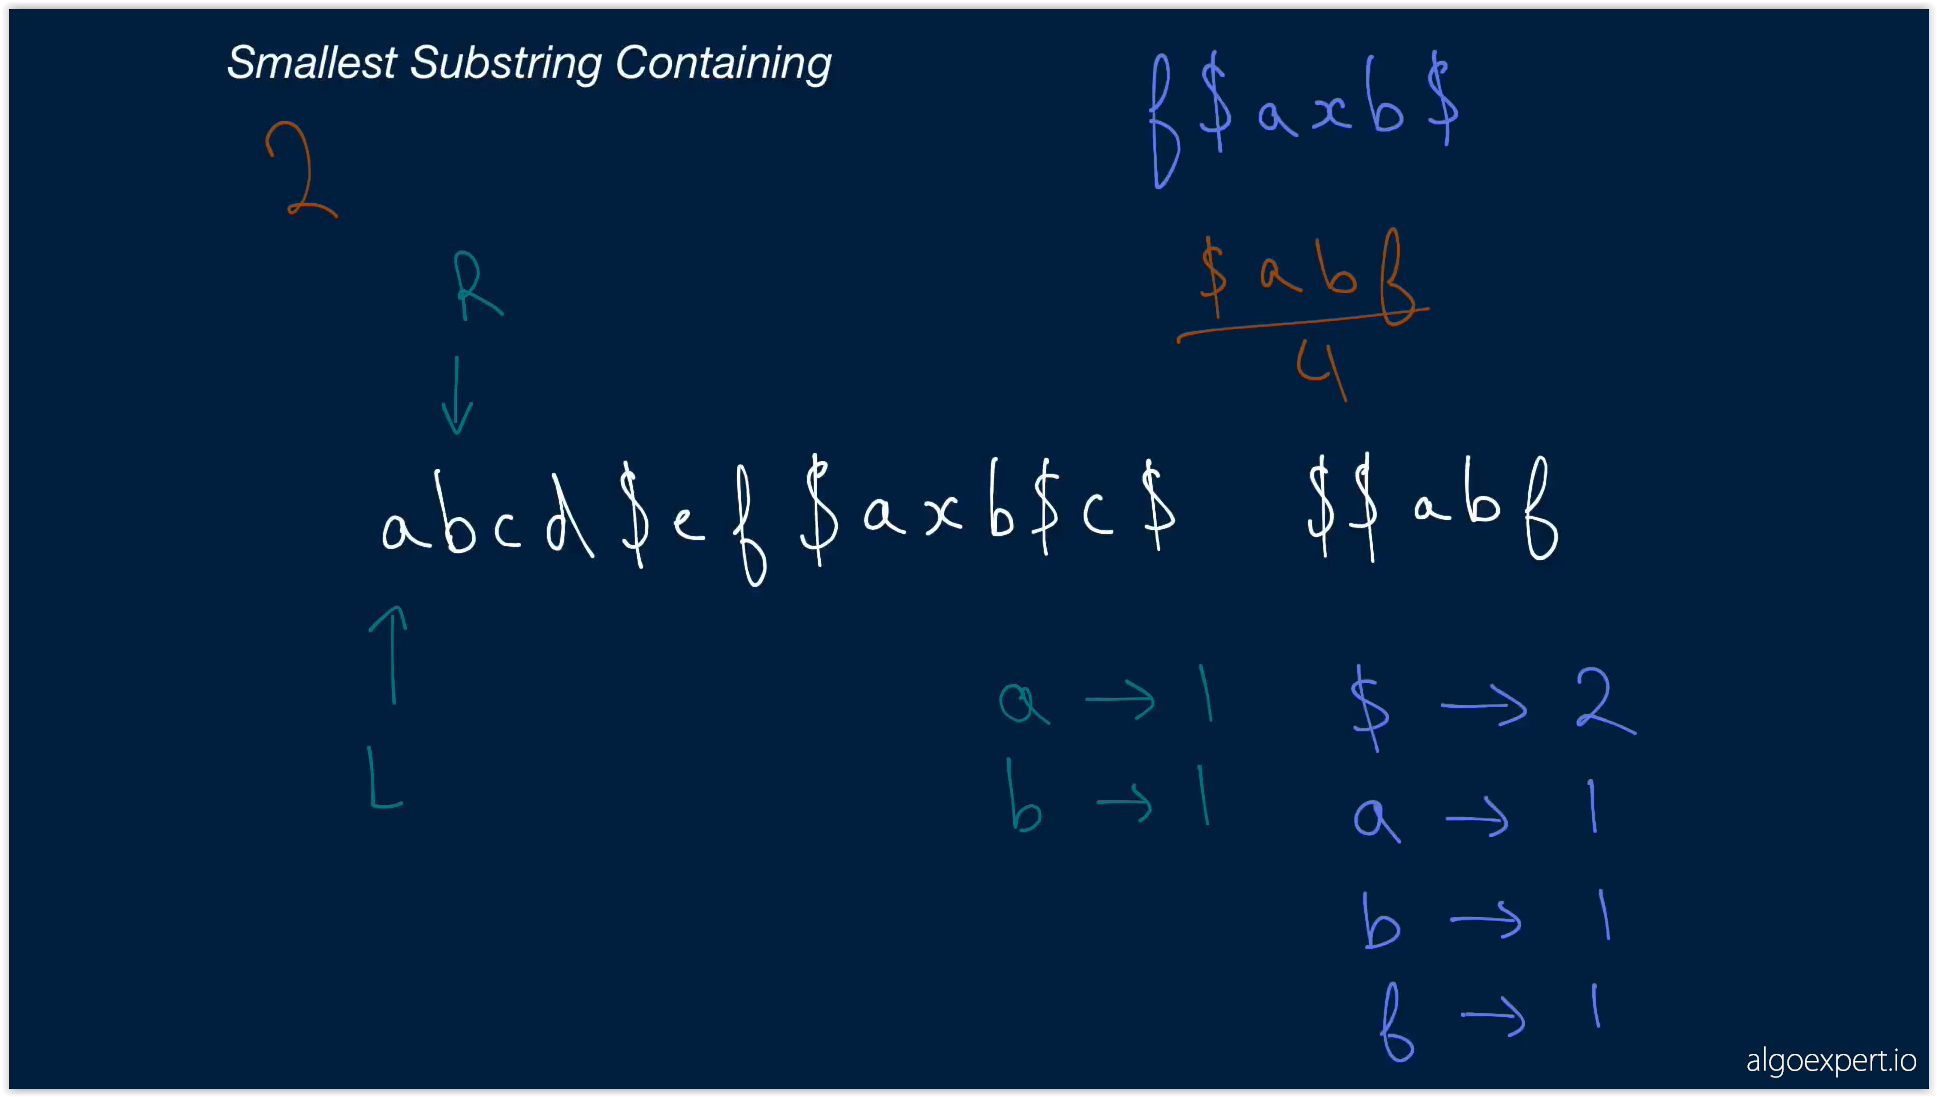 Smallest Substring Containing
f$axb$
2
$abf
4
R
abcd$ef$axb$c$ $$abf
L
a → 1 $ → 2
b → 1 a → 1
b → 1
f → 1
algoexpert.io